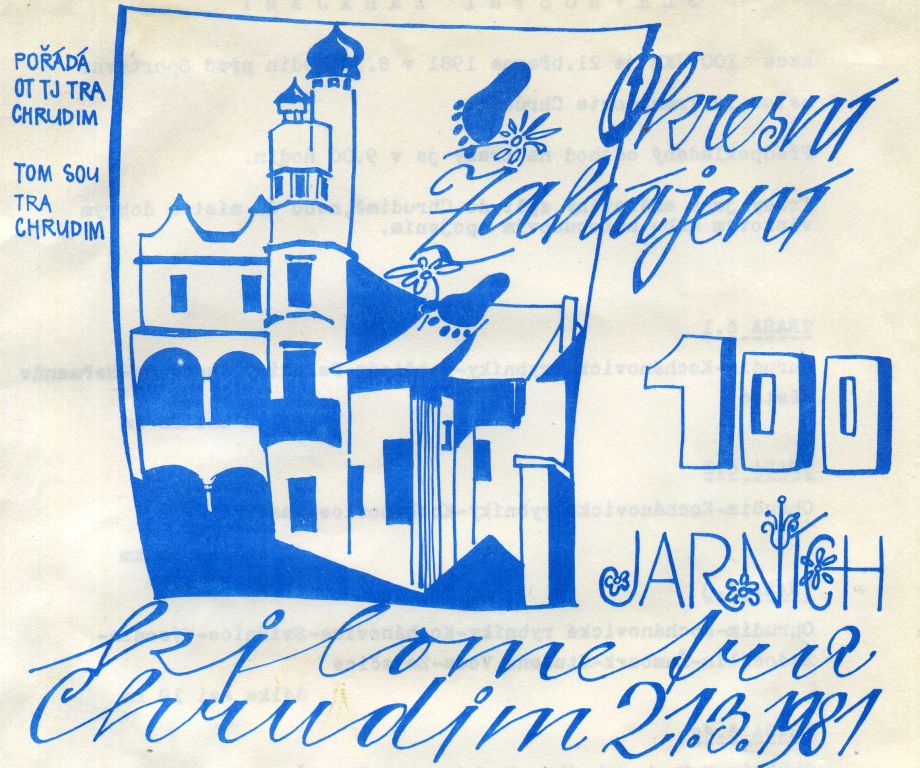 POŘÁDÁ
OT TJ TRA
CHRUDIM
TOM SOU
TRA
CHRUDIM
Okresní
Zahájení
100
JARNÍCH
kilometrů
Chrudim 21.3.1981